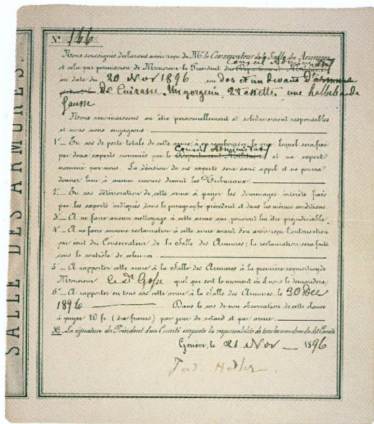 SALLE DES ARMURES.
N° 166
Nous soussignés déclarons avoir reçu de Mr le Conservateur de la Salle des Armures
et cela par permission de Monsieur le Président du Conseil Administratif
en date du 20 Nov 1896 un dos et un devant d'armure
de Cuirasse
fausse
Nous reconnaissons en être personnellement et solidairement responsables
et nous nous engageons
1° En cas de perte totale de cette arme à en rembourser le
par deux experts nommés par le Conseil Administratif et un expert
nommé par nous. La décision de ces experts sera sans appel et ne pourra
donner lieu à aucun recours devant les Tribunaux.
2° En cas détérioration de cette arme à payer les dommages intérêts fixés
par les experts indiqués dans le paragraphe précédent et dans les mêmes conditions.
3° A ne faire aucun nettoyage à cette arme qui pourrait lui être préjudiciable.
4° A ne faire aucune réclamation à cette arme avant d'en avoir reçu l'autorisation
par écrit du Conservateur de la Salle des Armures; la réclamation sera faite
sous le contrôle de celui-ci
5° A rapporter cette arme à la Salle des Armures à la première réquisition de
Monsieur Le Dr Gosse quel que soit le moment où il nous le demandera;
6° A rapporter en tous cas cette arme à la Salle des Armures, le 30 Dec
1896 Dans le cas de non observation de cette clause
à payer 10 fr (dix francs) par jour de retard et par arme.
La signature du Président d'un Comité emporte la responsabilité de tous les membres du dit Comité
Genève, le 21 Nov 1896
Ferd. Hodler